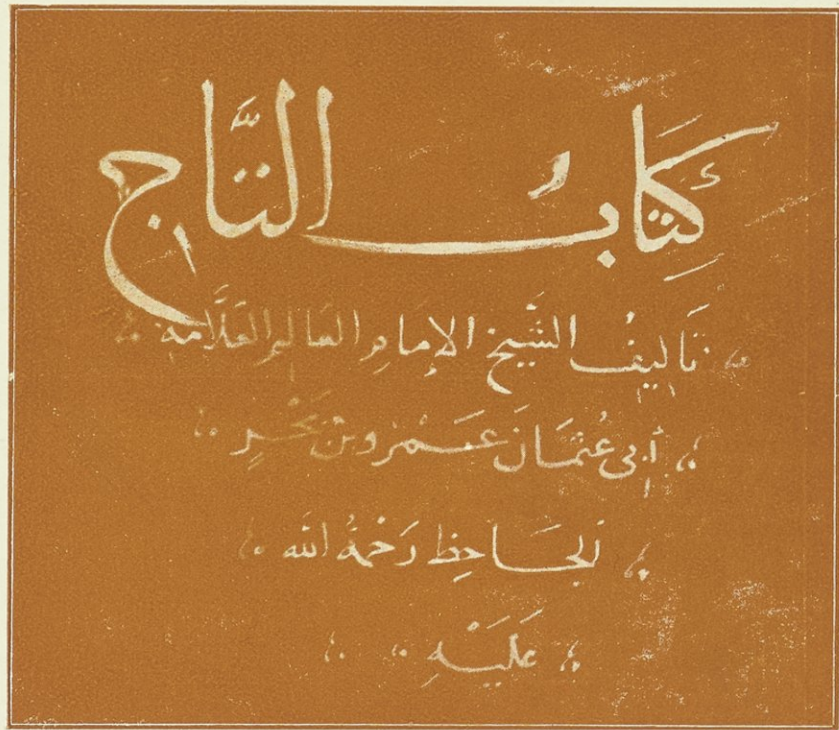 كِتَابُ التَّاج
تَاليفُ الشَّيخ الإمَامِ العَالِمِ العَلَّامَةِ
أبى عُثمَانَ عَمْرو بن بَحْرٍ
الجَاحِظ رَحْمَةُ الله
عَلَيْهِ